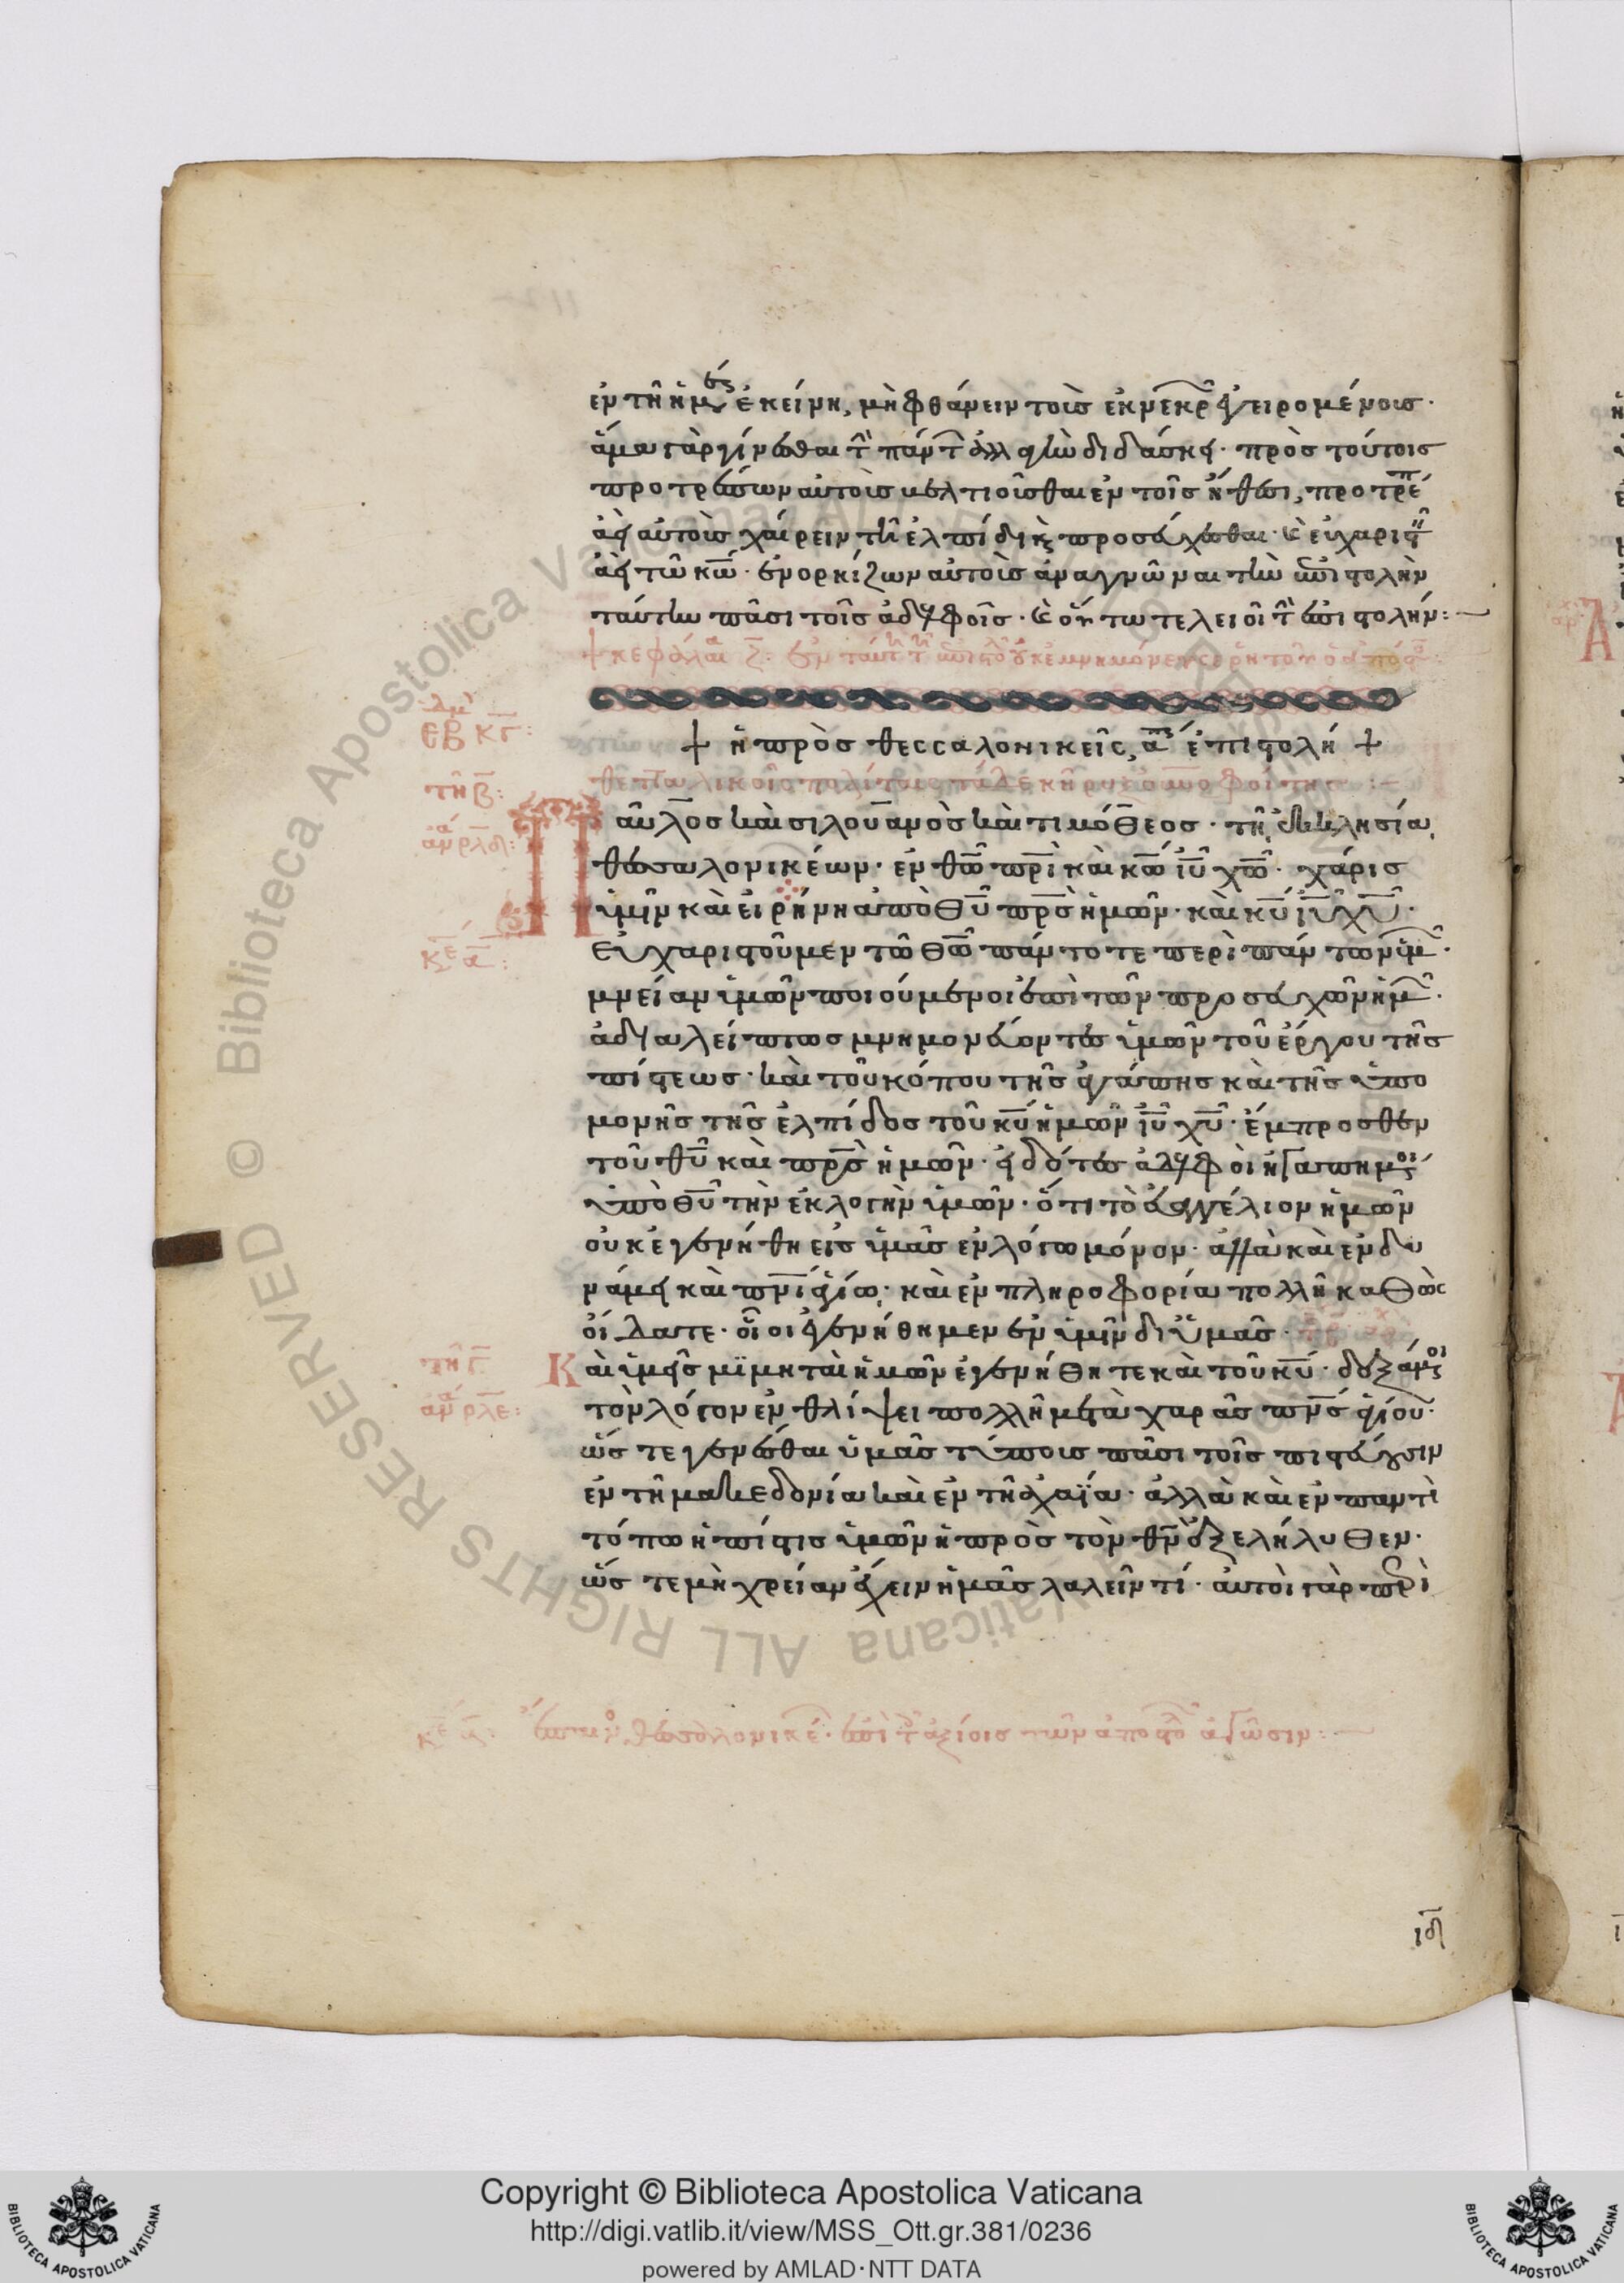 ἐν τῆ ἡμέρ ἐκείνη, μὴ φθάνειν τοὺς ἐκ νεκρῶ ἐγειρομένους·
ἅμα γὰρ γίνεσθαι τὴ πάντ ἀλλαγὴν διδάσκει· πρὸς τούτοις
προτρέπων αὐτοὺς βελτιοῦσθαι ἐν τοῖς ἤθεσι, προτρέπ
αὐτοὺς χαίρειν τῆ ἐλπίδι κ προσεύχεσθαι· κ εὐχαριστ
τῶ κω· ἐνορκίζων αὐτοὺς ἀναγνῶναι τὴν ἐπιστολὴν
ταύτην πᾶσι τοῖς ἀδελφοῖς· κ οὕτω τελειοῖ τὴ ἐπιστολήν:
+ κεφάλαι ζ: ἐν ταύτη τῆ
εβ κγ:
+ ἡ πρὸς θεσσαλονικεῖς, α ἐπιστολή +
τῆ β:
Παῦλος καὶ σιλουανὸς καὶ τιμόθεος· τῆ ἐκκλησία
ἀν ρλδ:
θεσσαλονικέων· ἐν θω πρι καὶ κω ιυ χω· χάρις
ὑμῖν καὶ εἰρήνη ἀπὸ θυ πρς ἡμῶν· καὶ κυ ιυ χυ·
εὐχαριστοῦμεν τῶ θω πάντοτε περὶ πάντων ὑμ·
κε α:
μνείαν ὑμῶν ποιούμενοι ἐπὶ τῶν προσευχῶν ἡμ·
ἀδιαλείπτως μνημονεύοντες ὑμῶν τοῦ ἔργου τῆς
πίστεως· καὶ τοῦ κόπου τῆς ἀγάπης καὶ τῆς ὑπο
μονῆς τῆς ἐλπίδος τοῦ κυ ἡμῶν ιυ χυ· ἔμπροσθεν
τοῦ θυ καὶ πρς ἡμῶν· εἰδότες ἀδελφοὶ ἠγαπημοι
ὑπὸ θυ τὴν ἐκλογὴν ὑμῶν· ὅτι τὸ εὐαγγέλιον ἡμῶν
οὐκ ἐγενήθη εἰς ὑμᾶς ἐν λόγω μόνον· ἀλλὰ καὶ ἐν δυ
νάμει καὶ πνι ἁγίω· καὶ ἐν πληροφορία πολλῆ καθὼς
οἴδατε· οἷοι ἐγενήθημεν ἐν ὑμῖν δι' ὑμᾶς·
τῆ γ
Καὶ ὑμεῖς μϊμηταὶ ἡμῶν ἐγενήθητε καὶ τοῦ κυ· δεξάμοι
ἀν ρλε:
τὸν λόγον ἐν θλίψει πολλῆ μετὰ χαρᾶς πνς ἁγίου·
ὥστε γενέσθαι ὑμᾶς τύπους πᾶσι τοῖς πιστεύουσιν
ἐν τῆ μακεδονία καὶ ἐν τῆ ἀχαΐα· ἀλλὰ καὶ ἐν παντὶ
τόπω ἡ πίστις ὑμῶν ἡ πρὸς τὸν θν ἐξελήλυθεν·
ὥστε μὴ χρείαν ἔχειν ἡμᾶς λαλεῖν τί· αὐτοὶ γὰρ περὶ
κε α: θεσσαλονικέ· ἐπὶ
ιδ
Biblioteca Apostolica Vaticana ALL RIGHTS RESERVED ©
Copyright © Biblioteca Apostolica Vaticana
http://digi.vatlib.it/view/MSS_Ott.gr.381/0236
powered by AMLAD·NTT DATA
BIBLIOTECA APOSTOLICA VATICANA
BIBLIOTECA APOSTOLICA VATICANA